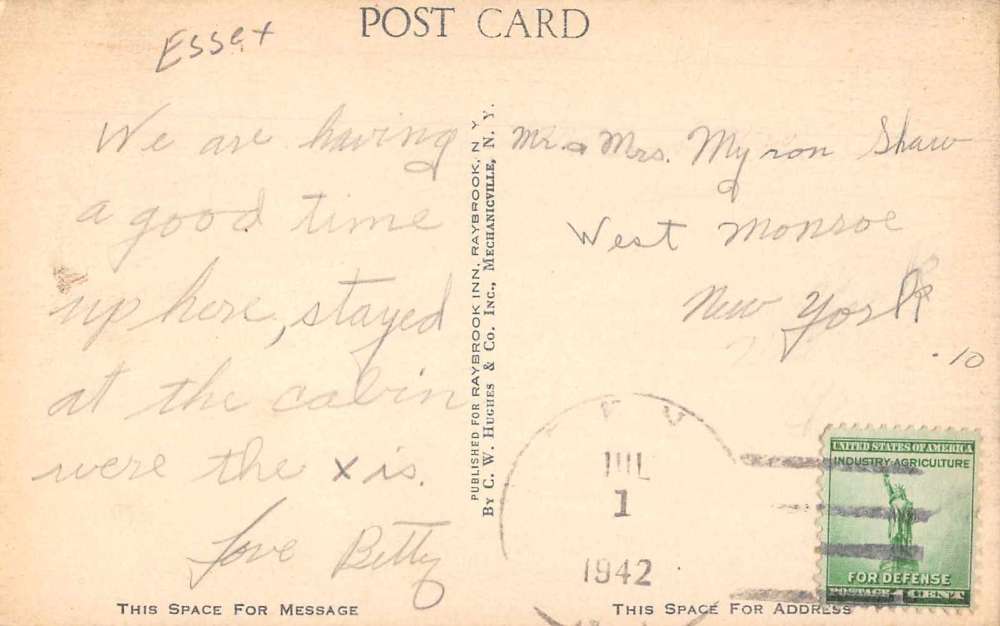 POST CARD
Essex
We are having
a good time
up here, stayed
at the cabin
were the x is.
Love Betty
THIS SPACE FOR MESSAGE
PUBLISHED FOR RAYBROOK INN, RAYBROOK, N. Y.
BY C. W. HUGHES & CO. INC., MECHANICVILLE, N. Y.
Mr. & Mrs. Myron Shaw
West Monroe
New York
.10
JUL
1
1942
UNITED STATES OF AMERICA
INDUSTRY·AGRICULTURE
FOR DEFENSE
POSTAGE 1 CENT
THIS SPACE FOR ADDRESS